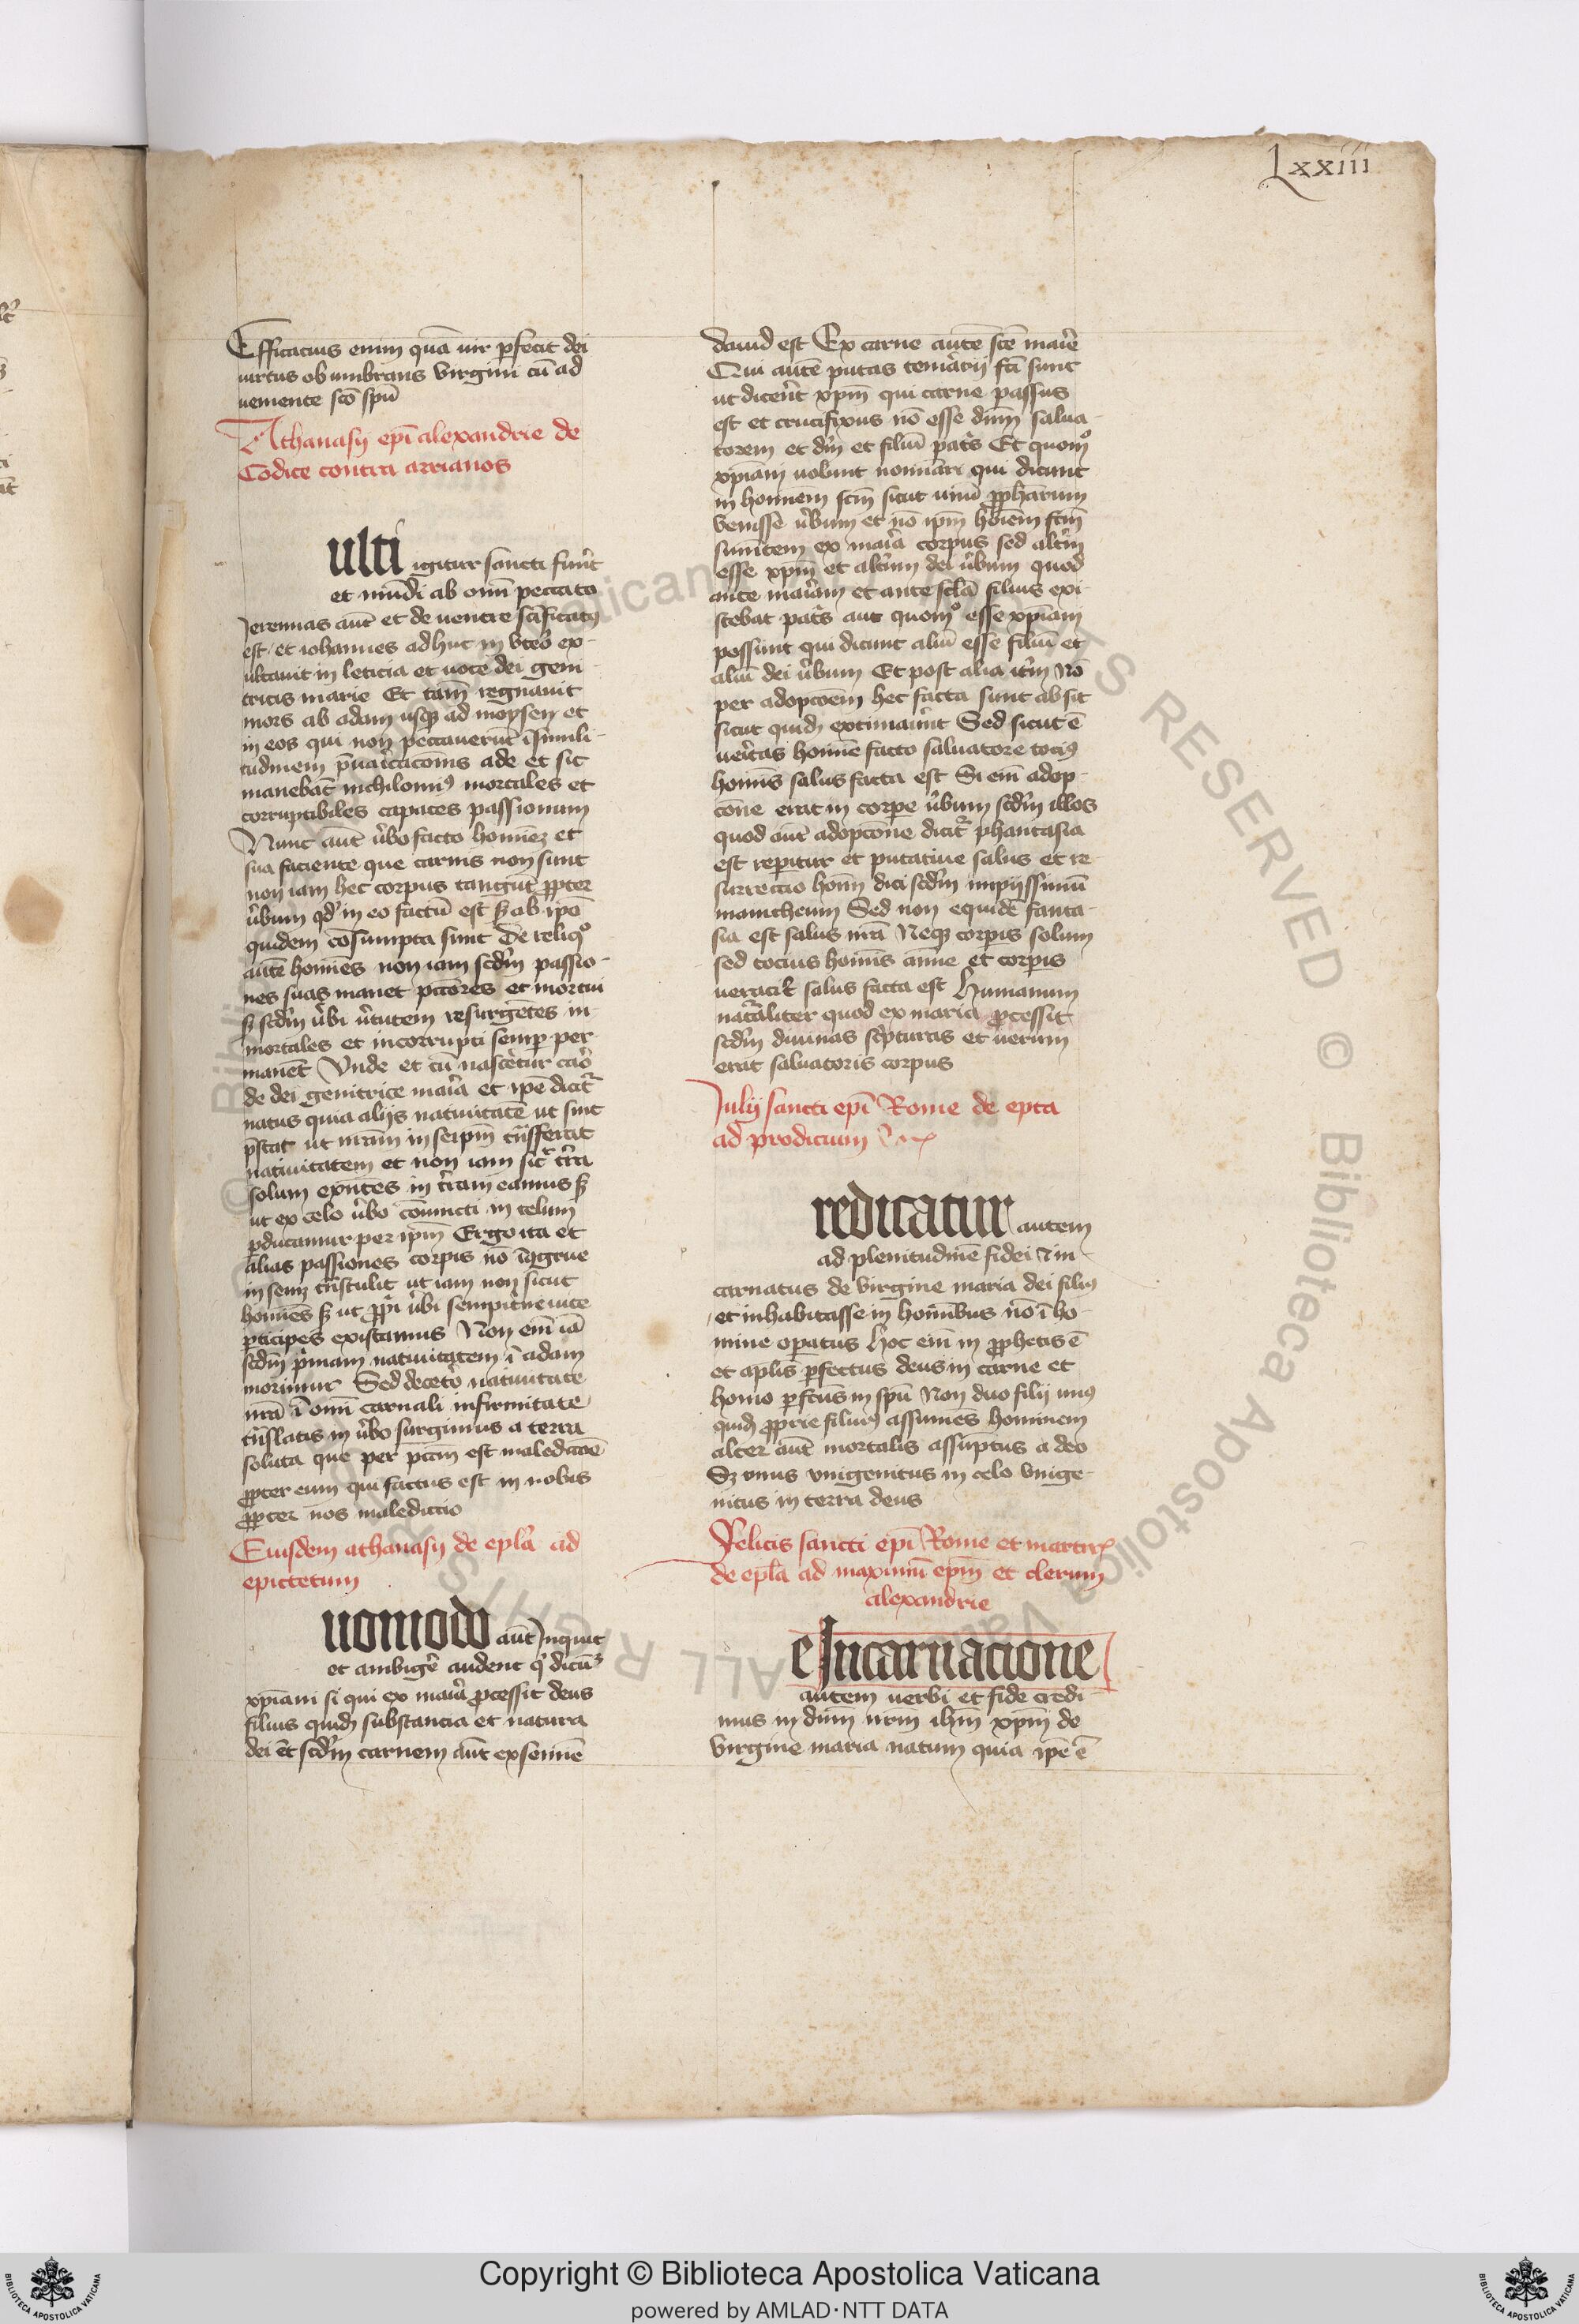 Lxxiii
Efficacius enim quā vir ꝑfecit dei
virtus obumbrans virgini cū ad
veniente scō spū
Athanasij epī alexandrie de
Codice contra arrianos
ulti igitur sancti fuer̄t
et mūdi ab om̄i peccato
Jeremias aut̄ et de ventre scīficatꝰ
est / et iohannes adhuc in vtero ex-
ultauit in leticia et voce dei geni-
tricis marie Et tam̄ regnauit
mors ab adam usqꝫ ad moysen et
in eos qui non peccauerūt ī simili-
tudinem p̄uaricacōnis ade et sic
manebāt nichilominꝰ mortales et
corruptibiles capaces passionum
Nunc aut̄ v̓bo facto homīeꝫ et
sua faciente que carnis non sunt
non iam hec corpus tangūt ꝓpter
v̓bum qđ in eo factū est sꝫ ab ip̄o
quidem cōsumpta sunt De reliqͦ
autē homīes non iam scđm passio-
nes suas manet pctōres et mortui
sꝫ scđm v̓bi v̓tutem resurgētes in-
mortales et incorrupti semꝑ per-
manēt Vnde et cū nascetur caro
de dei genitrice mar̄ia et ip̄e dicit̉
natus quia alijs natiuitatē ut sint
p̄stat ut nr̄am in seip̄m tn̄sferat
natiuitatem et non iam sic̉ t̉ra
solum exn̄tes in t̉ram eamus sꝫ
ut ex celo v̓bo cōiuncti in celum
ꝑducamur per ip̄m Ergo ita et
alias passiones corꝑis nō īgrue
in semꝫ tn̄stulit ut iam non sicut
homīes sꝫ ut ꝓprī v̓bi sempit̉ne vite
ꝑticipes existamus Non em̄ iā
scđm p̉mam natiuitatem ī adam
morimur Sed decet̉o natiuitate
nr̄a ī om̄i carnali infirmitate
tn̄slatis in v̓bo surgimus a terra
soluta que per pctm̄ est maledictōe
ꝓpter eum qui factus est in nobis
ꝓpter nos maledictio
Eiusdem athanasij de epl̄a ad
epictetum
uomodo aut̄ Jnquit
et ambiger̄ audent qͥ dicūt̉
xp̄iani si qui ex mar̄ia ꝓcessit deus
filius quidꝫ substancia et natura
dei ēt scđm carnem aut̄ ex semīe
dauid est Ex carne autē scē mar̄ie
Qui autē putas temerarij fct̄i sunt
ut dicer̄nt xp̄m qui carne passus
est et crucifixus nō esse dn̄m salua-
torem et dm̄ et filiū pat̉s Et quomͦ
xp̄iani volunt nomīari qui dicunt
in homīem scm̄ sicut vinū ꝓphetarum
venisse v̓bum et nō ip̄m hōiem fctm̄
sumētem ex mar̄ia corpus sed alt̉m
esse xp̄m et alt̉um dei v̓bum quod
ante mar̄iam et ante scl̄a filius exi-
stebat pat̉s aut quomͦ esse xp̄iani
possunt qui dicunt aliū esse filiū et
aliū dei v̓bum Et post alia it̉m Nō
per adopcōem hec facta sunt absit
sicut quidꝫ extimauer̄nt Sed sicut ē
veritas homīe facto saluatore tociꝰ
homīs salus facta est Si em̄ adop-
cōne erat in corꝑe v̓bum scđm illos
quod aut̄ adopcōne dicit̉ phantasia
est reꝑitur et putatiue salus et re-
surrectio homī dici scđm impijssimū
manicheum Sed non equidē fanta-
sia est salus nr̄a Neqꝫ corꝑis solum
sed tocius homīs anīme et corꝑis
veracit̉ salus facta est Humanum
nat̉aliter quod ex maria ꝓcessit
scđm diuinas sc̉pturas et verum
erat saluatoris corpus
Julij sancti epī Rome de epta
ad prodicium
redicatur autem
ad plenitudinē fidei ⁊ in-
carnatus de virgine maria dei filiꝰ
et inhabitasse in homībus nō ī ho-
mine oꝑatus hoc em̄ in ꝓphetis ē
et apl̄is ꝑfectus deus in carne et
homo ꝑfctūs in spū Non duo filij vnꝰ
quidꝫ ꝓprie filius assumēs hominem
alter aut̄ mortalis assūptus a deo
Sꝫ vnus vnigenitus in celo vnige-
nitus in terra deus
Felicis sancti epī Rome et martir̄
de epl̄a ad maximū epm̄ et clerum
alexandrie
e Jncarnacione
autem verbi et fide credi-
mus in dn̄m nr̄m ih̄m xp̄m de
virgine maria natum quia ip̄e ē
Copyright © Biblioteca Apostolica Vaticana
powered by AMLAD·NTT DATA